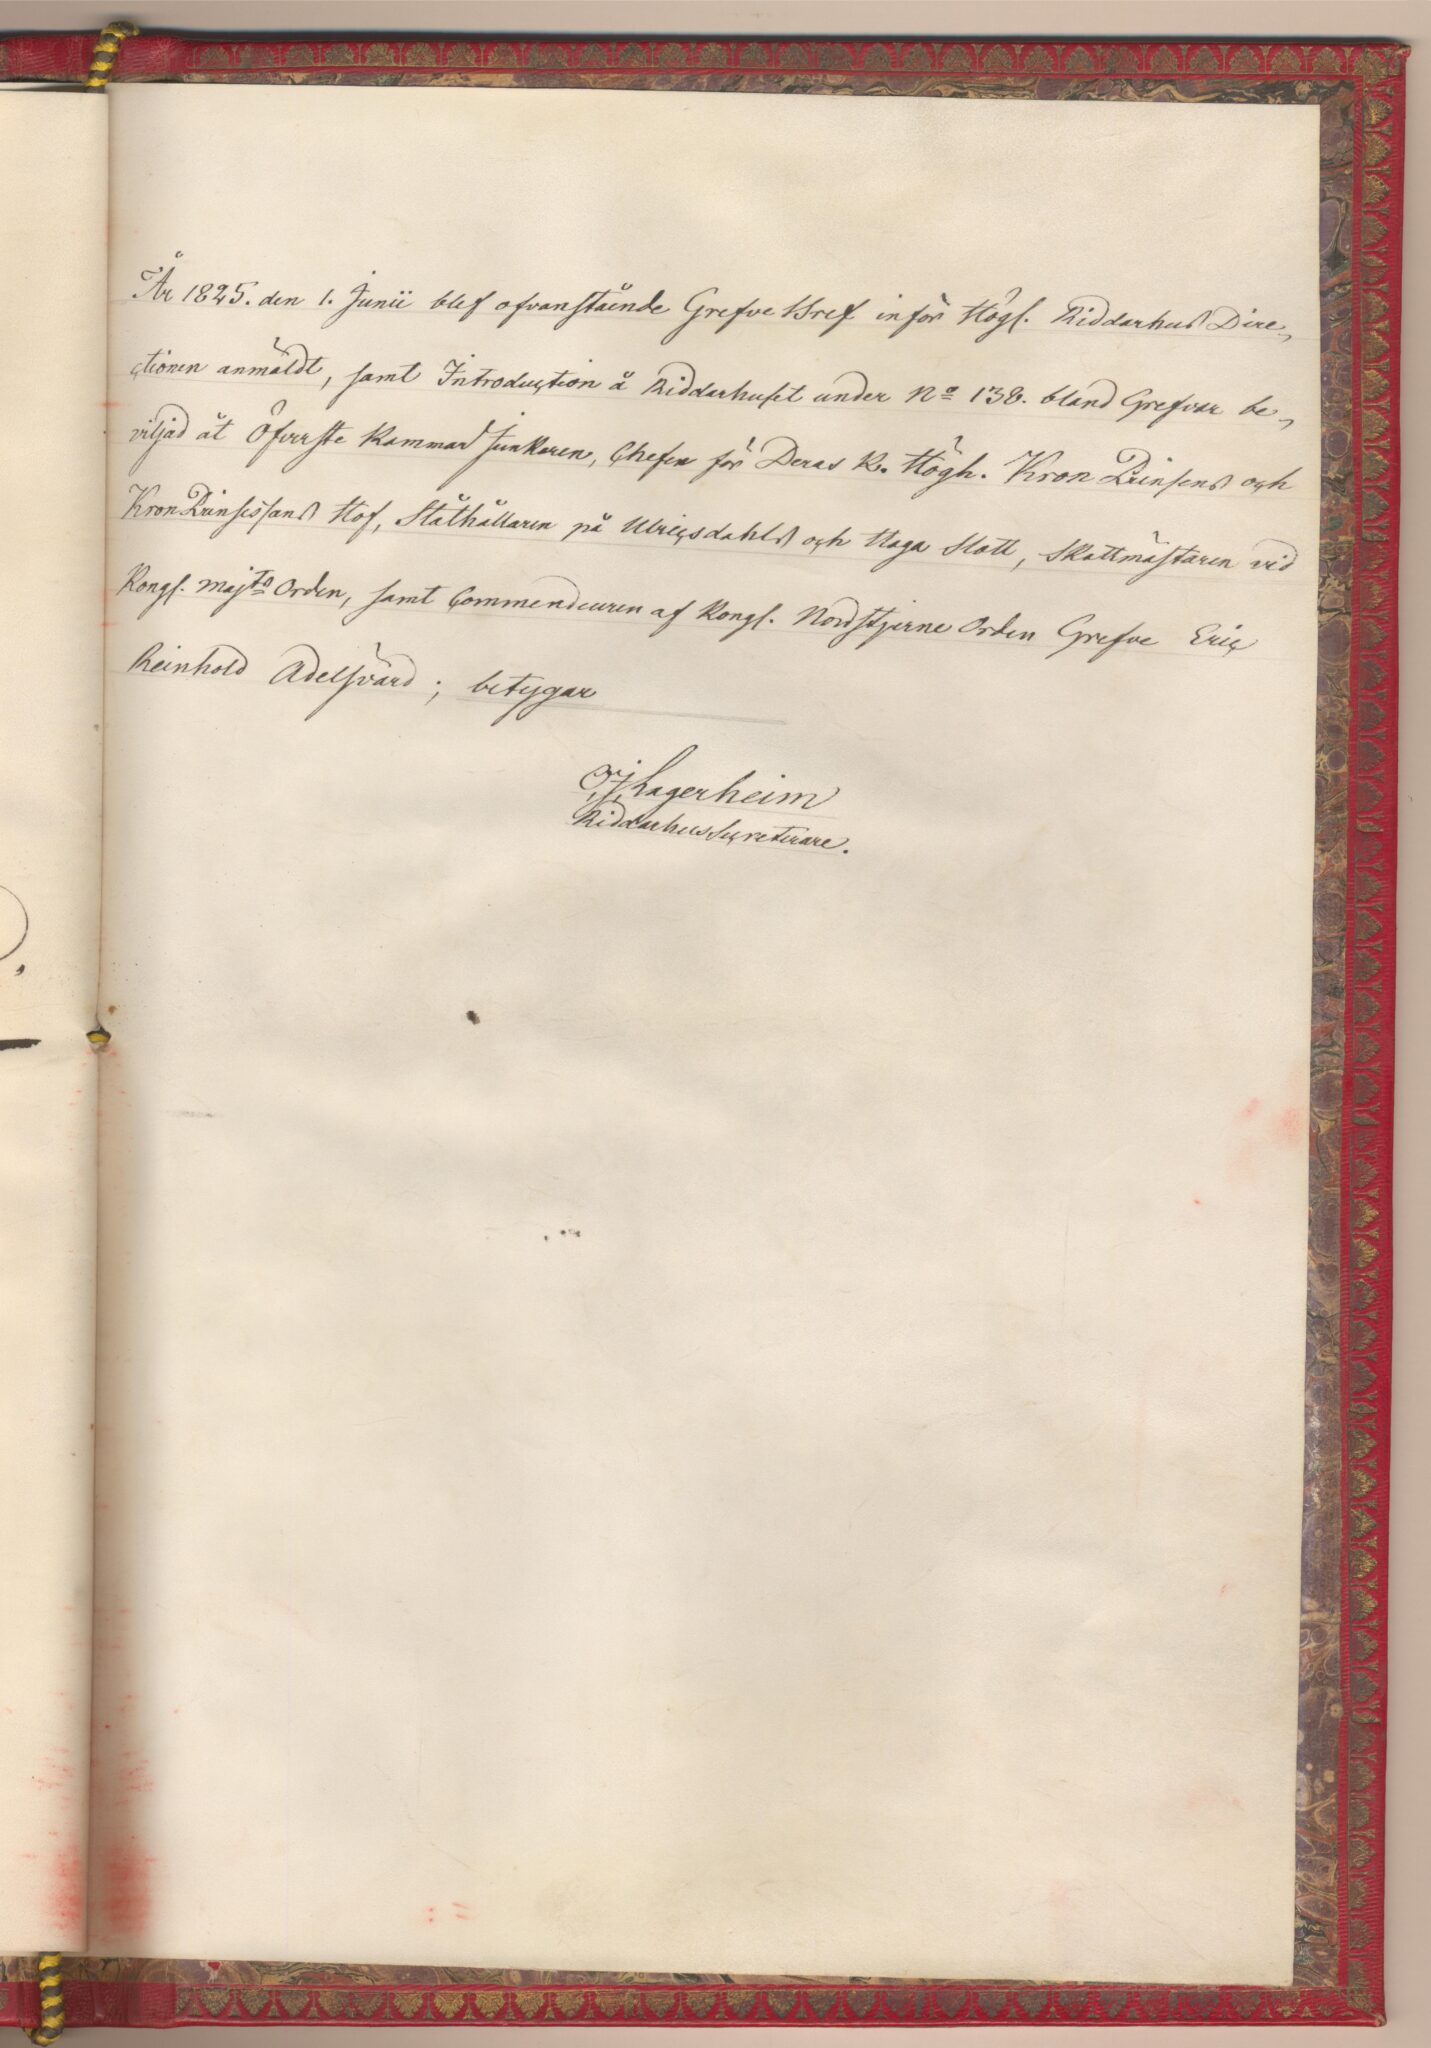 År 1825. den 1. Junii blef ofvanstående Grefve Bref inför Högl. Riddarhus Dire-
ctionen anmäldt, samt Introduction å Riddarhuset under No 138. bland Grefvar be-
viljad åt Öfverste Kammar Junkaren, Chefen för Deras K. Högh. Kron Prinsens och
Kron Prinsessans Hof, Ståthållaren på Ulricsdahls och Haga Slott, Skattmästaren vid
Kongl. Majts Orden, samt Commendeuren af Kongl. Nordstjerne Orden Grefve Eric
Reinhold Adelsvärd; betygar
Lagerheim
Riddarhus Secreterare.